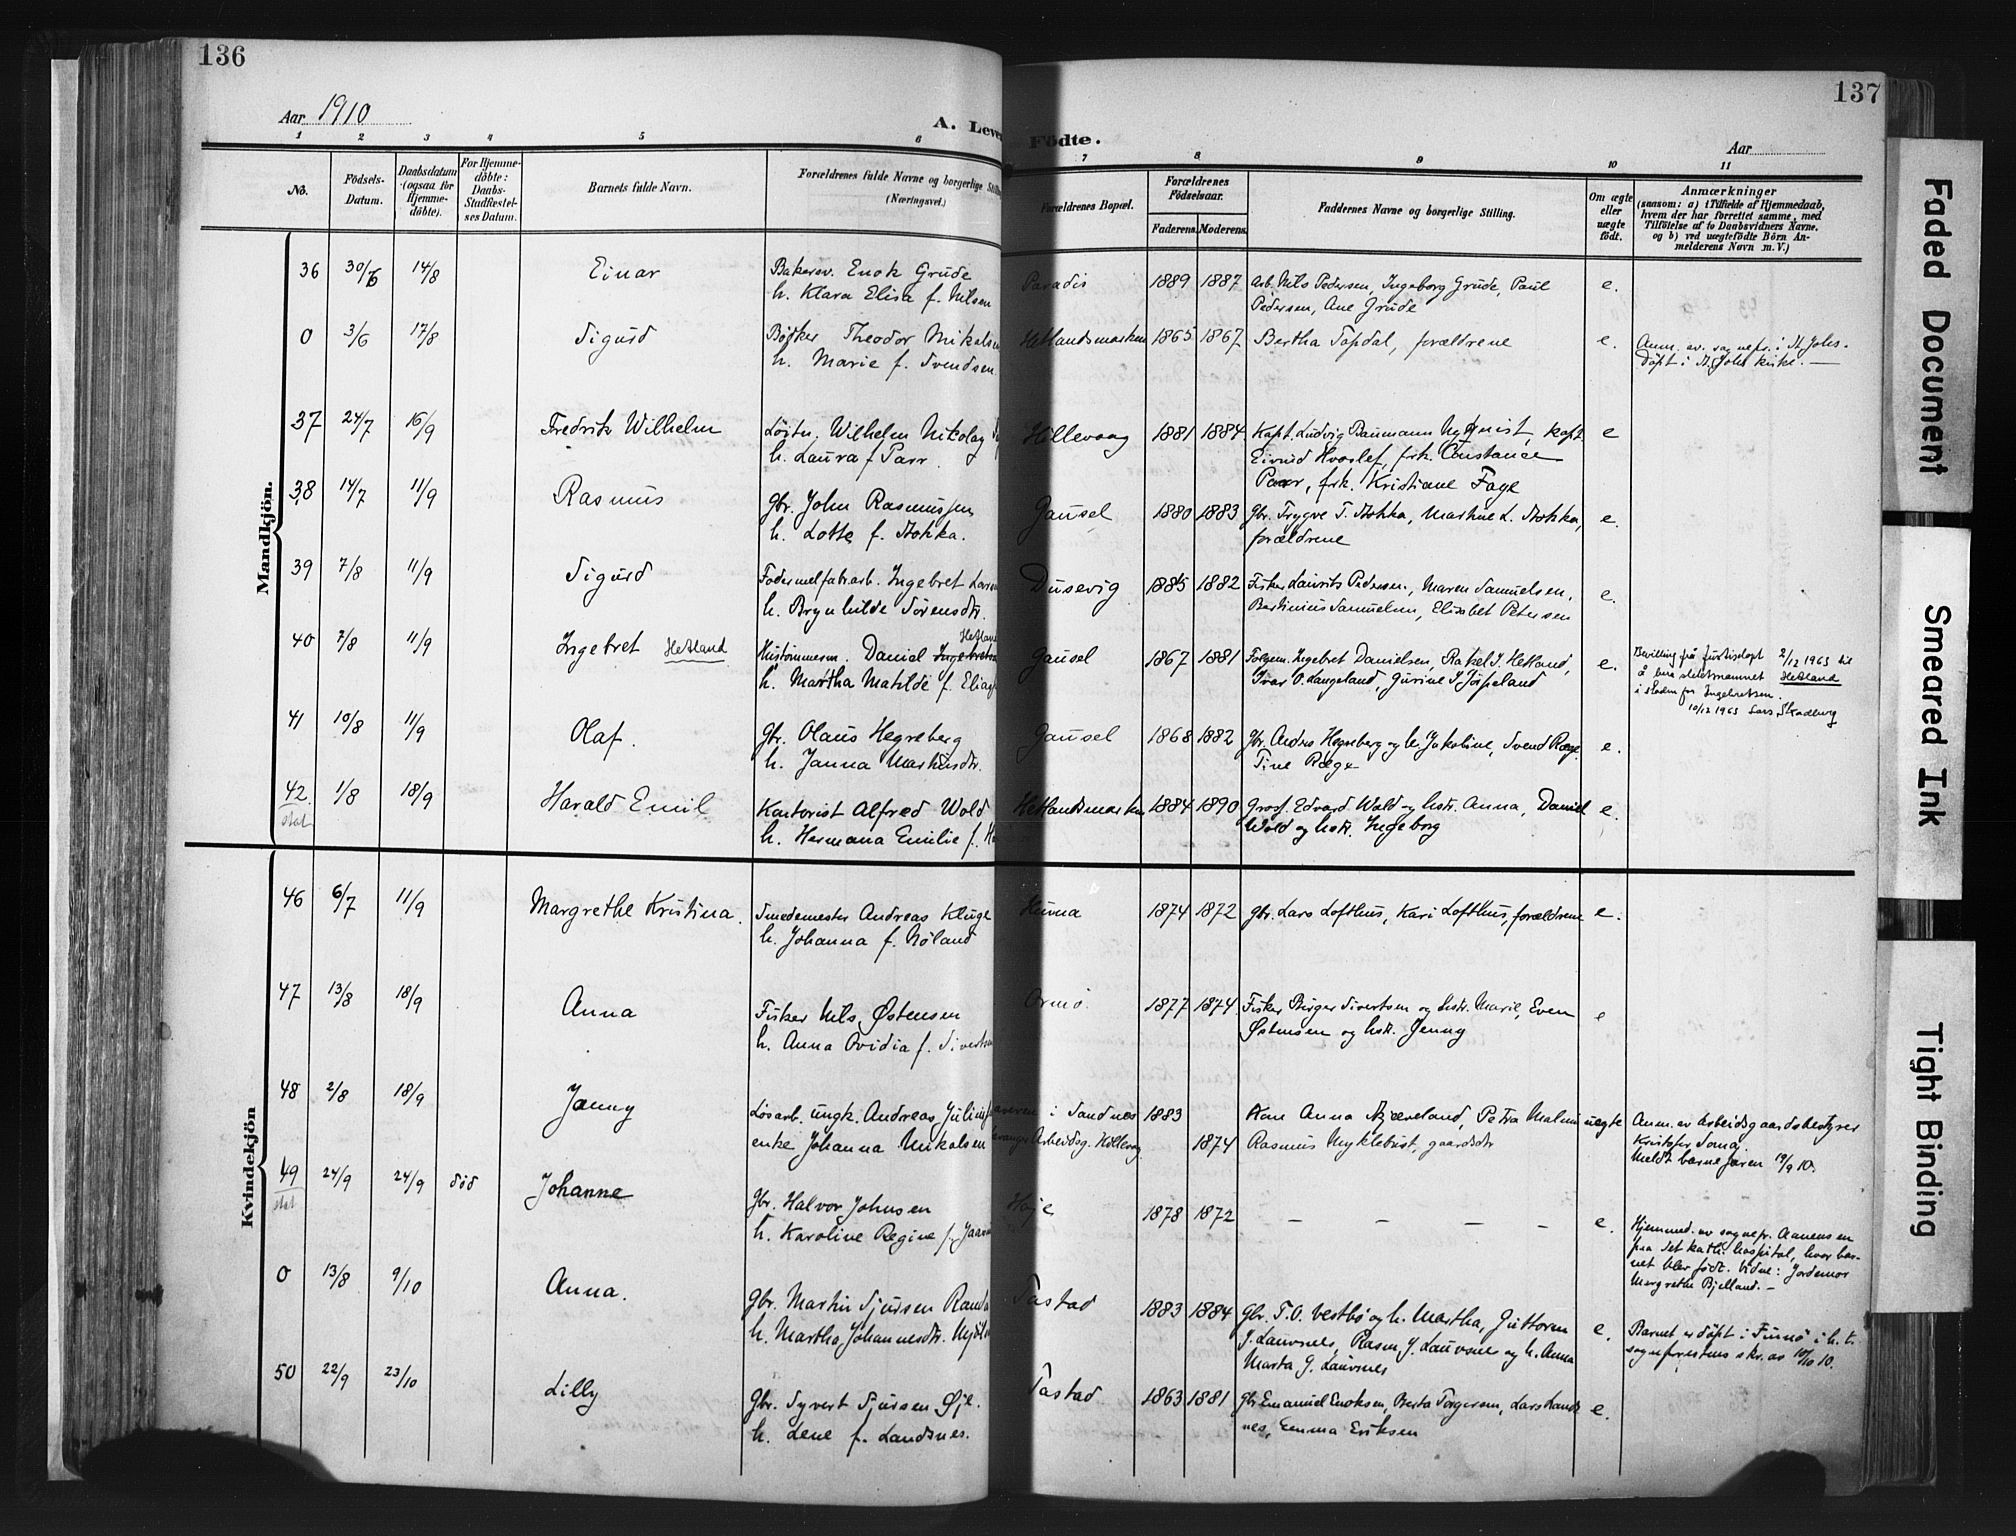 136
137
Aar 1910
A. Leve
Födte.
Aar
1 2 3 4 5 6 7 8 9 10 11
No.
Födsels-Datum.
Daabsdatum (ogsaa for Hjemme-døbte).
For Hjemme-døbte: Daabs-Stadfæstel-ses Datum.
Barnets fulde Navn.
Forældrenes fulde Navne og borgerlige Stil
(Næringsvei.)
Forældrenes Bopæl.
Forældrenes Födselsaar.
Faderens. Moderens.
Faddernes Navne og borgerlige Stilling.
Om ægte eller uægte födt.
Anmærkninger
(saasom: a) i Tilfælde af Hjemmedaab,
hvem der har forrettet samme, med
Tilföielse af to Daabsvidners Navne.
og b) ved uægtefödte Börn An-
melderens Navn m. V.)
Mandkjön.
36 30/6 14/8 Einar Bakersv. Enok Grude Paradis 1889 1887 Arb. Nils Pedersen, Ingeborg Grude, Paul e.
h. Klara Elisa f. Nilsen Pedersen, Ane Grude
0 3/6 17/8 Sigurd Bødker Theodor Mikalsen Hetlandsmarken 1865 1867 Bertha Topdal, forældrene e. Anm. av. sognepr. i St. Johs.
h. Marie f. Svendsen Døpt i St. Johs kirke. —
37 24/7 16/9 Fredrik Wilhelm Løitn. Wilhelm Nikolay Hillevaag 1881 1884 Kapt. Ludvig Baumann Nyquist, kapt. e
h. Laura f Parr. Eivind Hvoslef, frk. Constance
Parr, frk. Kristiane Faye
38 14/7 11/9 Rasmus Gbr. John Rasmussen Gausel 1880 1883 Gbr. Trygve T. Stokka, Martine L. Stokka, e.
h. Lotte f. Stokka. forældrene
39 7/8 11/9 Sigurd Fodermelfabr.arb. Ingebret Larsen Dusevig 1885 1882 Fisker Laurits Pedersen, Maren Samuelsen, e.
h. Brynhilde Sørensdtr. Bertinius Samuelsen, Elisabet Petersen
40 7/8 11/9 Ingebret Hetland Hustømmerm. Daniel Ingebretsen Hetland Gausel 1867 1881 Følgem. Ingebret Danielsen, Rakel I. Hetland, e. Bevilling frå Justisdept 2/12 1963 til
h. Martha Matilde f. Eliag Ivar O. Langeland, Gurine I Jørpeland å bera slektsnamnet Hetland
i staden for Ingebretsen.
10/12 1963 Lars Skadberg
41 10/8 11/9 Olaf. Gbr. Olaus Hegreberg Gausel 1868 1882 Gbr. Andrs Hegreberg og h. Jakobine, Svend Ræge e.
h. Janna Markusdtr. Tine Ræge
42. 1/8 18/9 Harald Emil Kontorist Alfred Wold Hetlandsmarken 1884 1890 Gros. Edvard Wold og hstr. Anna, Daniel e.
stat h. Hermana Emilie f. Wold og hstr. Ingeborg
Kvindekjön
46 6/7 11/9 Margrethe Kristina. Smedemester Andreas Kluge Hinna 1874 1872 Gbr. Lars Lofthus, Kari Lofthus, forældrene e.
h. Johanna f. Nøland
47 13/8 18/9 Anna Fisker Nils Østensen Ormø. 1877 1874 Fisker Birger Sivertsen og hstr. Marie, Even e
h. Anna Ovidia f. Sivertsen Østensen og hstr. Jenny
48 2/8 18/9 Jenny Løsarb. ungk. Andreas Julius i Sandnes 1883 Kone Anna Kjæveland, Petra Malmin uegte Anm. av Arbeidsgaardsbestyrer
enke Johanna Mikalsen Arbeidsg. Hillevag 1874 Rasmus Myklebust, gaardsdr Kristofer Soma,
Meldt barnejoren 19/9 10.
49 24/9 24/9 død Johanne Gbr. Halvor Johnsen Høje 1878 1872 — — — — e. Hjemmed. av sognepr. Aanensen
stat h. Karoline Regine f. Jaasund paa det kath. hospital, hvor bar-
net blev født. Vidne: Jordemor
Margrethe Bjelland. —
0 13/8 9/10 Anna. Gbr. Martin Sjursen Randa Tastad 1883 1884 Gbr. T. O. Vestbø og h. Martha, Guttorm e. Barnet er døpt i Finnø i h. t.
h. Martha Johannesdtr. J. Lauvsnes, Rasm. J. Lauvsnes og h. Anna sogneprestens skr. av 10/10 10.
Marta G. Lauvsnes
50 22/9 23/10 Lilly Gbr. Syvert Sjursen Øje. Tastad 1863 1881 Gbr Emanuel Enoksen, Berta Torgersen, Lars Lands e.
h. Lene f. Landsnes. nes, Emma Eriksen
Faded Document
Smeared Ink
Tight Binding